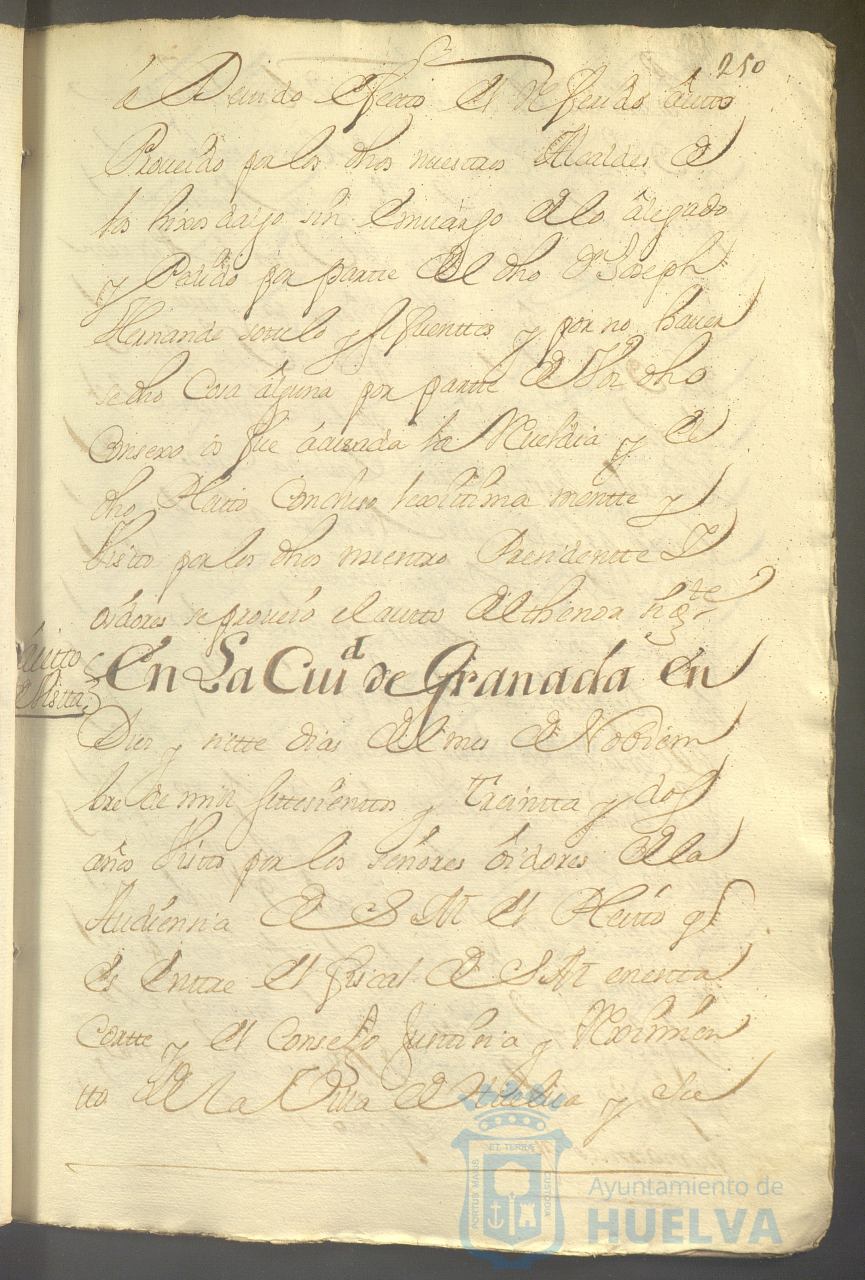 250
á Deuido efecto el referido áuto
Proueido por los dhos nuestros Alcaldes de
los hixos dalgo sin émuargo de lo álegado
y Pedido por partte del dho Dn Joseph
Hernande sottelo y sifuenttes y por no hauer
se dho Cosa álguna por partte del dho
Consexo le fue ácusada la Reueldia y el
dho Pleito Concluso lexittima mentte y
Visto por los dhos nuestro Presidentte Y
oidores se proueió el autto del thenor sigte
áutto de Vista
En La Ciud de Granada en
Diez y siette dias del mes de Nobiem
bre de mill settesienttos y Treintta y dos
años Visto por los señores óidores de la
Audiensia de S M el Pleito qe
és énttre el fiscal de S M en estta
Cortte y el Consejo Justtisia y Reximien
tto de la Villa de Huelua y
PORTUS MARIS ET TERRÆ CUSTODIA
Ayuntamiento de
HUELVA